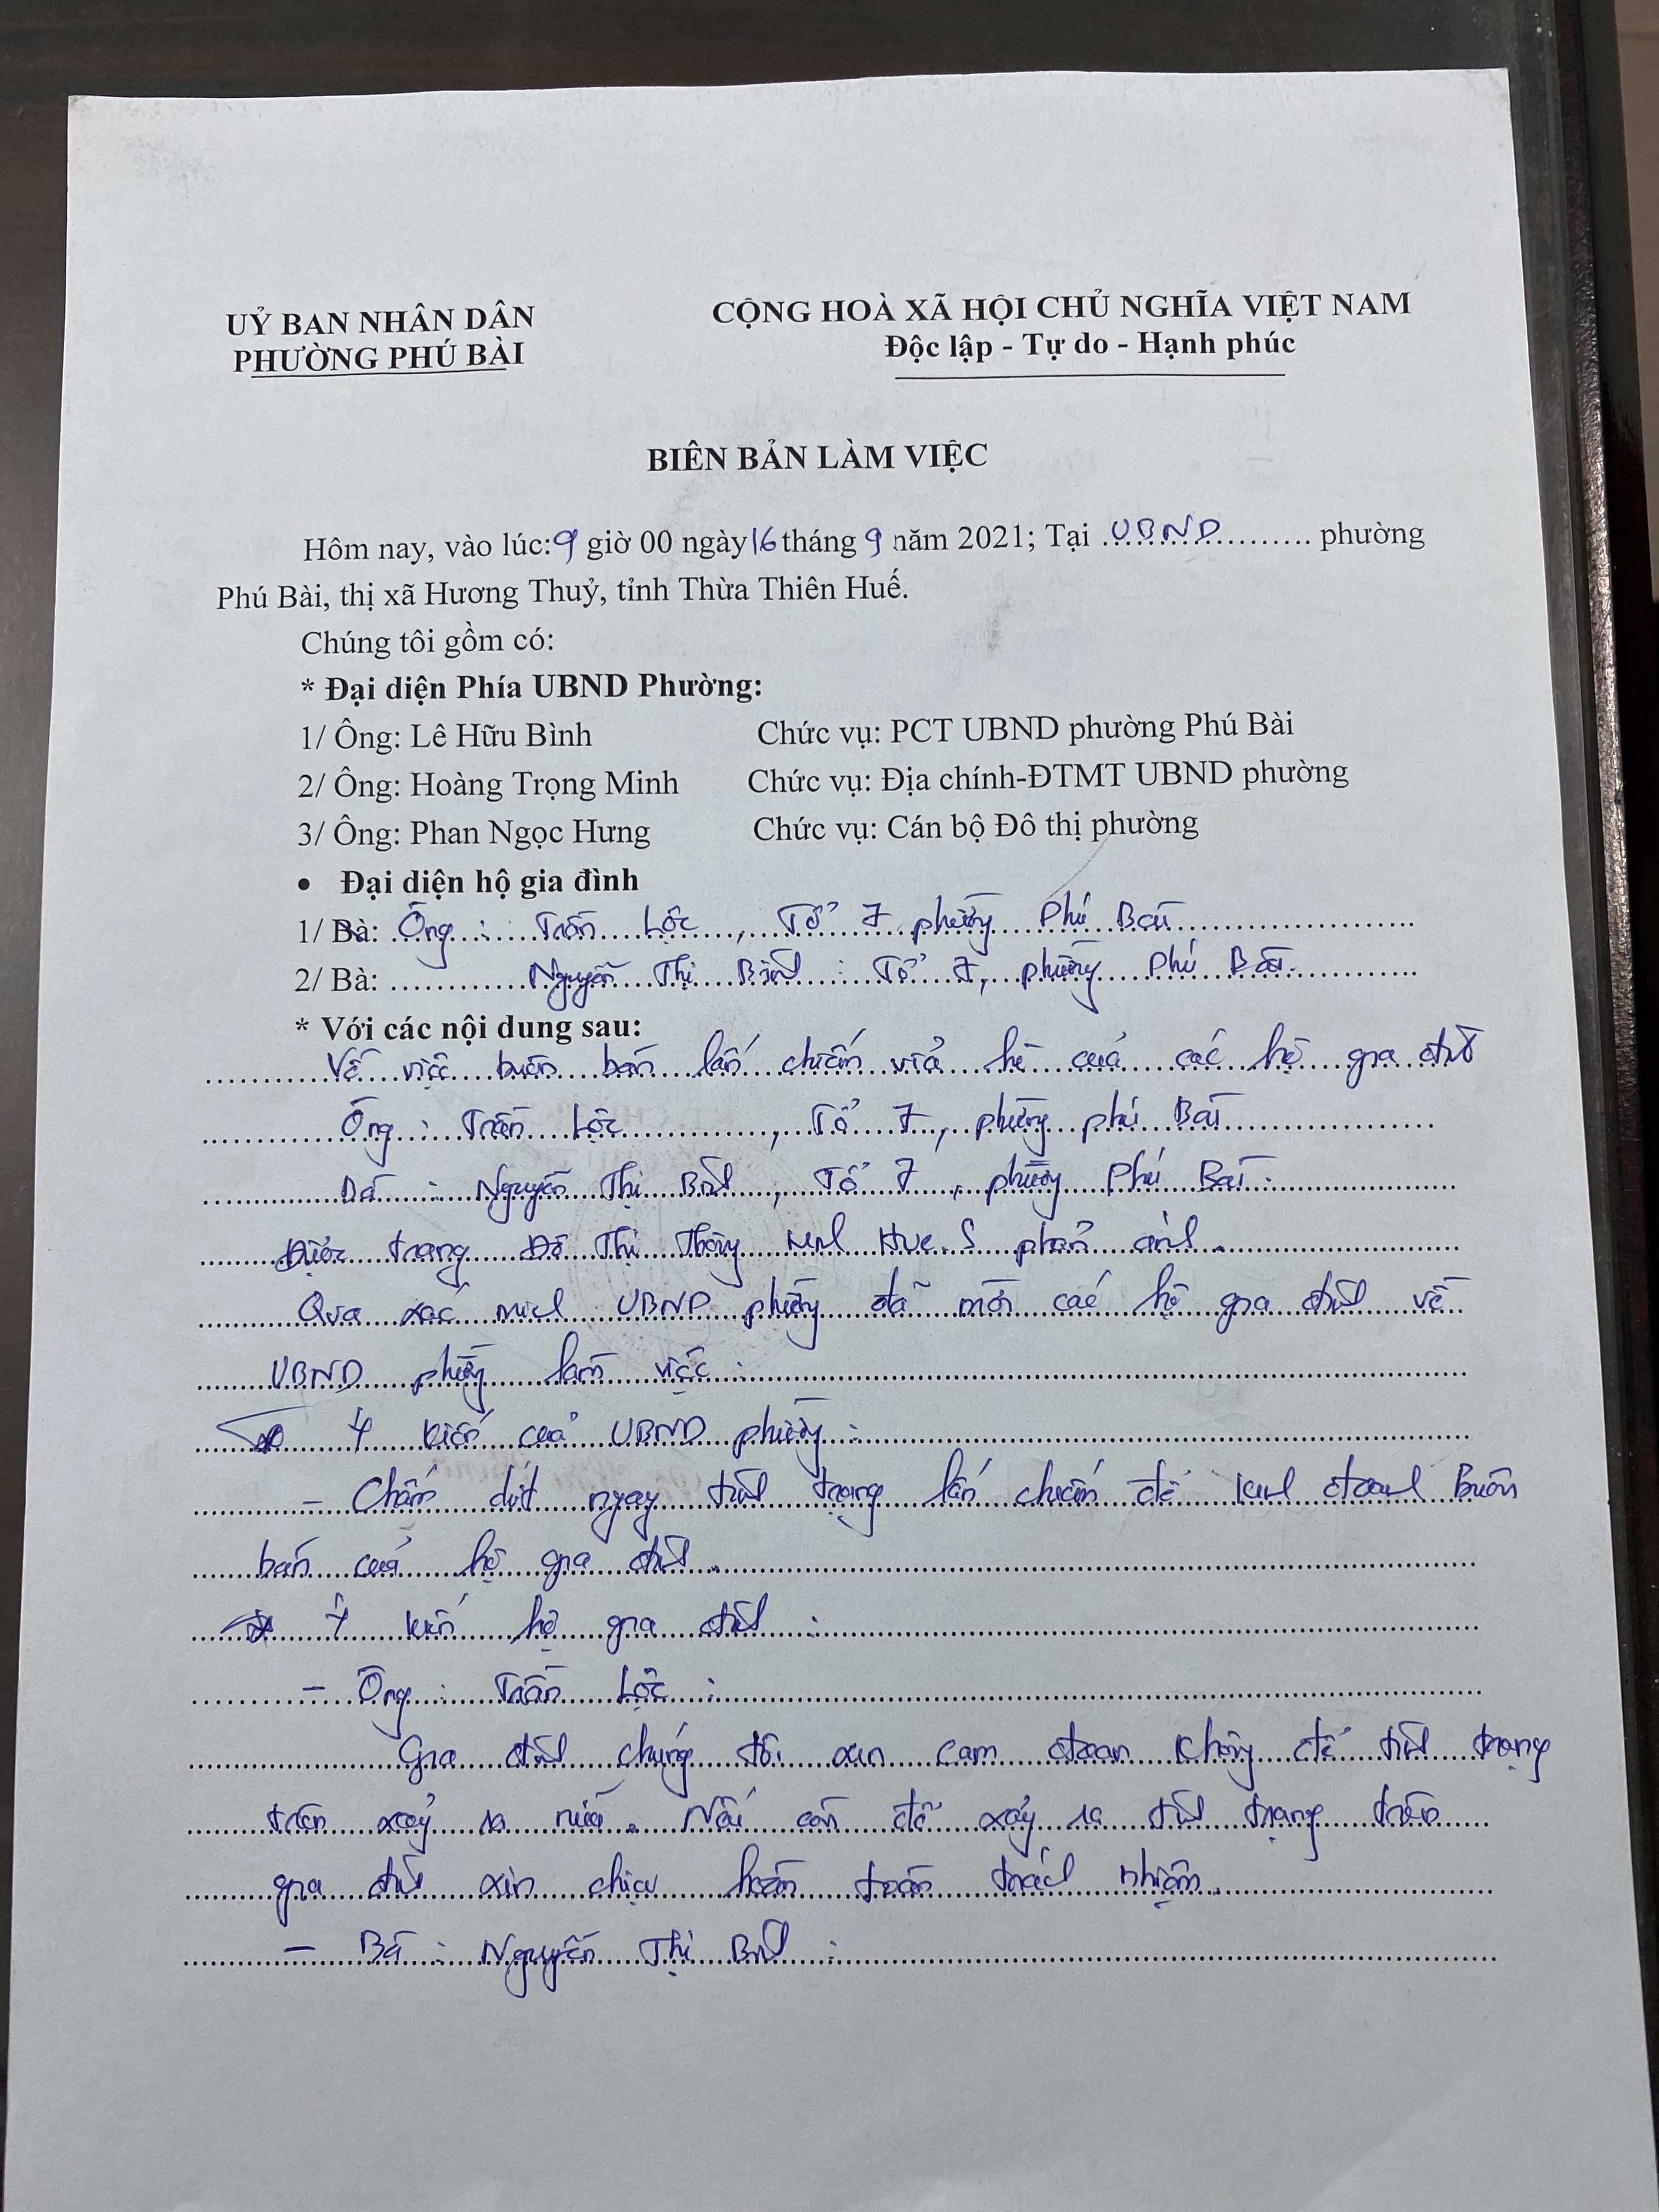 UỶ BAN NHÂN DÂN
PHƯỜNG PHÚ BÀI
CỘNG HOÀ XÃ HỘI CHỦ NGHĨA VIỆT NAM
Độc lập - Tự do - Hạnh phúc
BIÊN BẢN LÀM VIỆC
Hôm nay, vào lúc: 9 giờ 00 ngày 16 tháng 9 năm 2021; Tại UBND phường
Phú Bài, thị xã Hương Thuỷ, tỉnh Thừa Thiên Huế.
Chúng tôi gồm có:
* Đại diện Phía UBND Phường:
1/ Ông: Lê Hữu Bình Chức vụ: PCT UBND phường Phú Bài
2/ Ông: Hoàng Trọng Minh Chức vụ: Địa chính-ĐTMT UBND phường
3/ Ông: Phan Ngọc Hưng Chức vụ: Cán bộ Đô thị phường
• Đại diện hộ gia đình
1/ Bà: Ông : Trần Lộc, Tổ 7 phường Phú Bài
2/ Bà: Nguyễn Thị : Tổ 7, phường Phú Bài.
* Với các nội dung sau:
Về việc buôn bán lấn chiếm vỉa hè của các hộ gia đình
Ông : Trần Lộc, Tổ 7, phường Phú Bài
Bà : Nguyễn Thị, Tổ 7, phường Phú Bài.
Được trang Đô Thị Thông minh Hue.S phản ánh.
Qua xác minh UBND phường đã mời các hộ gia đình về
UBND phường làm việc :
* Ý kiến của UBND phường :
- Chấm dứt ngay tình trạng lấn chiếm để kinh doanh Buôn
bán của hộ gia đình.
* Ý kiến hộ gia đình :
- Ông : Trần Lộc :
Gia đình chúng tôi xin cam đoan không để tình trạng
trên xảy ra nữa. Nếu còn để xảy ra tình trạng trên
gia đình xin chịu hoàn toàn trách nhiệm.
- Bà : Nguyễn Thị :